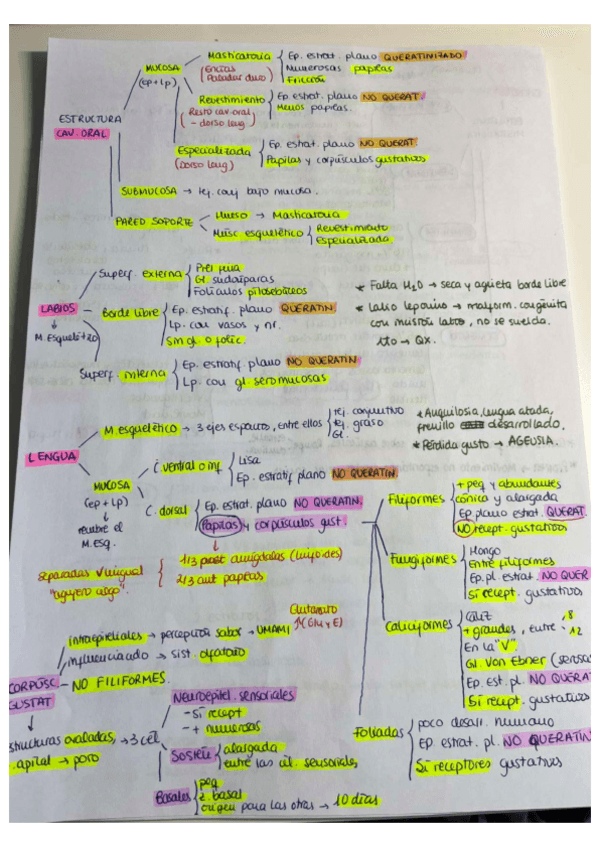 Masticatoria
(Encías
Paladar duro)
Ep. estrat. plano QUERATINIZADO
Numerosas papilas
Fricción
MUCOSA
(ep+lp)
Revestimiento
(Resto cav. oral
- dorso leng)
Ep estrat. plano NO QUERAT.
Menos papilas.
ESTRUCTURA
CAV. ORAL
Especializada
(Dorso leng)
Ep. estrat. plano NO QUERAT
Papilas y corpúsculos gustativos
SUBMUCOSA → tej. conj bajo mucosa.
PARED SOPORTE
Hueso → Masticatoria
Músc esquelético
Revestimiento
Especializada
LABIOS
↓
M. Esquelético
Superf. externa
Piel fina
Gl. sudoríparas
Folículos pilosebáceos
Borde libre
Ep. estratif. plano QUERATIN.
Lp. con vasos y nr.
Sin gl. o folic.
Superf. interna
Ep. estratif. plano NO QUERATIN
Lp. con gl. seromucosas
* Falta H2O → seca y agrieta borde libre
* Labio leporino → malform. congénita
con labio, no se suelda.
tto → QX.
LENGUA
M esquelético → 3 ejes espacio, entre ellos
tej. conjuntivo
tej. graso
Gl.
* Anquilosia, lengua atada,
frenillo desarrollado.
* Pérdida gusto → AGEUSIA.
MUCOSA
(ep+lp)
↓
recubre el
M. esq.
C. ventral o inf
Lisa
Ep. estratif plano NO QUERATIN
C. dorsal
Ep. estrat. plano NO QUERATIN.
Papilas y corpúsculos gust.
separadas V lingual
"agujero ciego"
1/3 post amígdalas (linfoides)
2/3 ant papilas
Filiformes
+ peq y abundantes
cónica y alargada
Ep plano estrat. QUERAT.
NO recept. gustativos
Fungiformes
Hongo
Entre filiformes
Ep. pl. estrat. NO QUER
Sí recept. gustativos
Caliciformes
Cáliz
+ grandes, entre 8
12
En la "V"
Gl. Von Ebner (serosa
Ep. est. pl. NO QUERAT
Sí recept. gustativos
Foliadas
poco desarr. humano
EP estrat. pl. NO QUERAT
Sí receptores gustativos
CORPÚSC
GUSTAT
intraepiteliales → percepción sabor → UMAMI
Glutamato
↑(Glu y E)
influenciado → sist. olfatorio
- NO FILIFORMES.
↓
structuras ovaladas, → 3 cél
apical → poro
Neuroepitel. sensoriales
- Sí recept
- + numerosas
Sostén
alargada
entre las cél. sensorials,
Basales
peq
z. basal
origen para las otras → 10 días